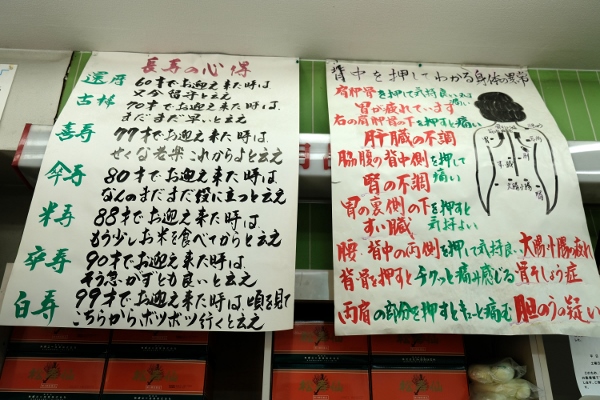 長寿の心得
還暦 60才でお迎え来た時は
只今留守と云え
古稀 70才でお迎え来た時は、
まだまだ早いと云え
喜寿 77才でお迎え来た時は、
せくな老楽これからよと云え
傘寿 80才でお迎え来た時は、
なんのまだまだ役に立つと云え
米寿 88才でお迎え来た時は、
もう少しお米を食べてからと云え
卒寿 90才でお迎え来た時は、
そう急がずとも良いと云え
白寿 99才でお迎え来た時は、頃を見て
こちらからボツボツ行くと云え
背中を押してわかる身体の異常
肩胛骨を押して気持良い又は痛い
胃が疲れています
右の肩胛骨の下を押すと痛い
肝臓の不調
脇腹の背中側を押して痛い
腎の不調
胃の裏側の下を押すと気持よい
すい臓
腰・背中の両側を押して気持良い 大腸小腸の疲れ
背骨を押すとチクッと痛み感じる 骨そしょう症
両肩の部分を押すとキューと痛む 胆のうの疑い